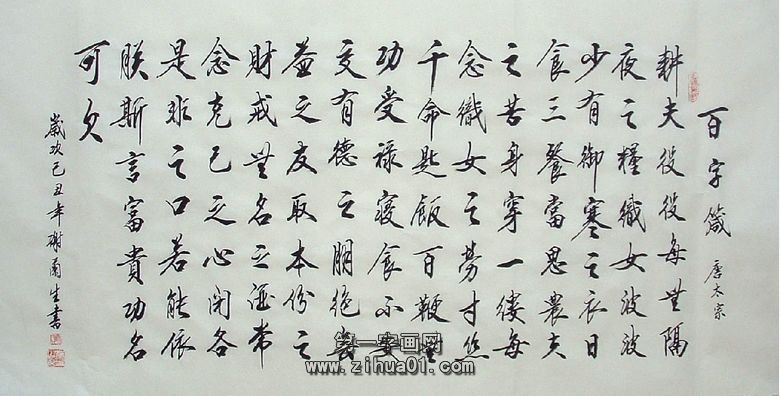 百字箴 唐太宗
耕夫役役每無隔
夜之糧織女波波
少有御寒之衣日
食三餐當思農夫
之苦身穿一縷每
念織女之勞寸絲
千命匙飯百鞭無
功受祿寢食不安
交有德之朋絕無
益之友取本份之
財戒無名之酒常
念克己之心閉各
是非之口若能依
朕斯言富貴功名
可久
歲次己丑年謝生書
第一字画网
www.zihua01.com